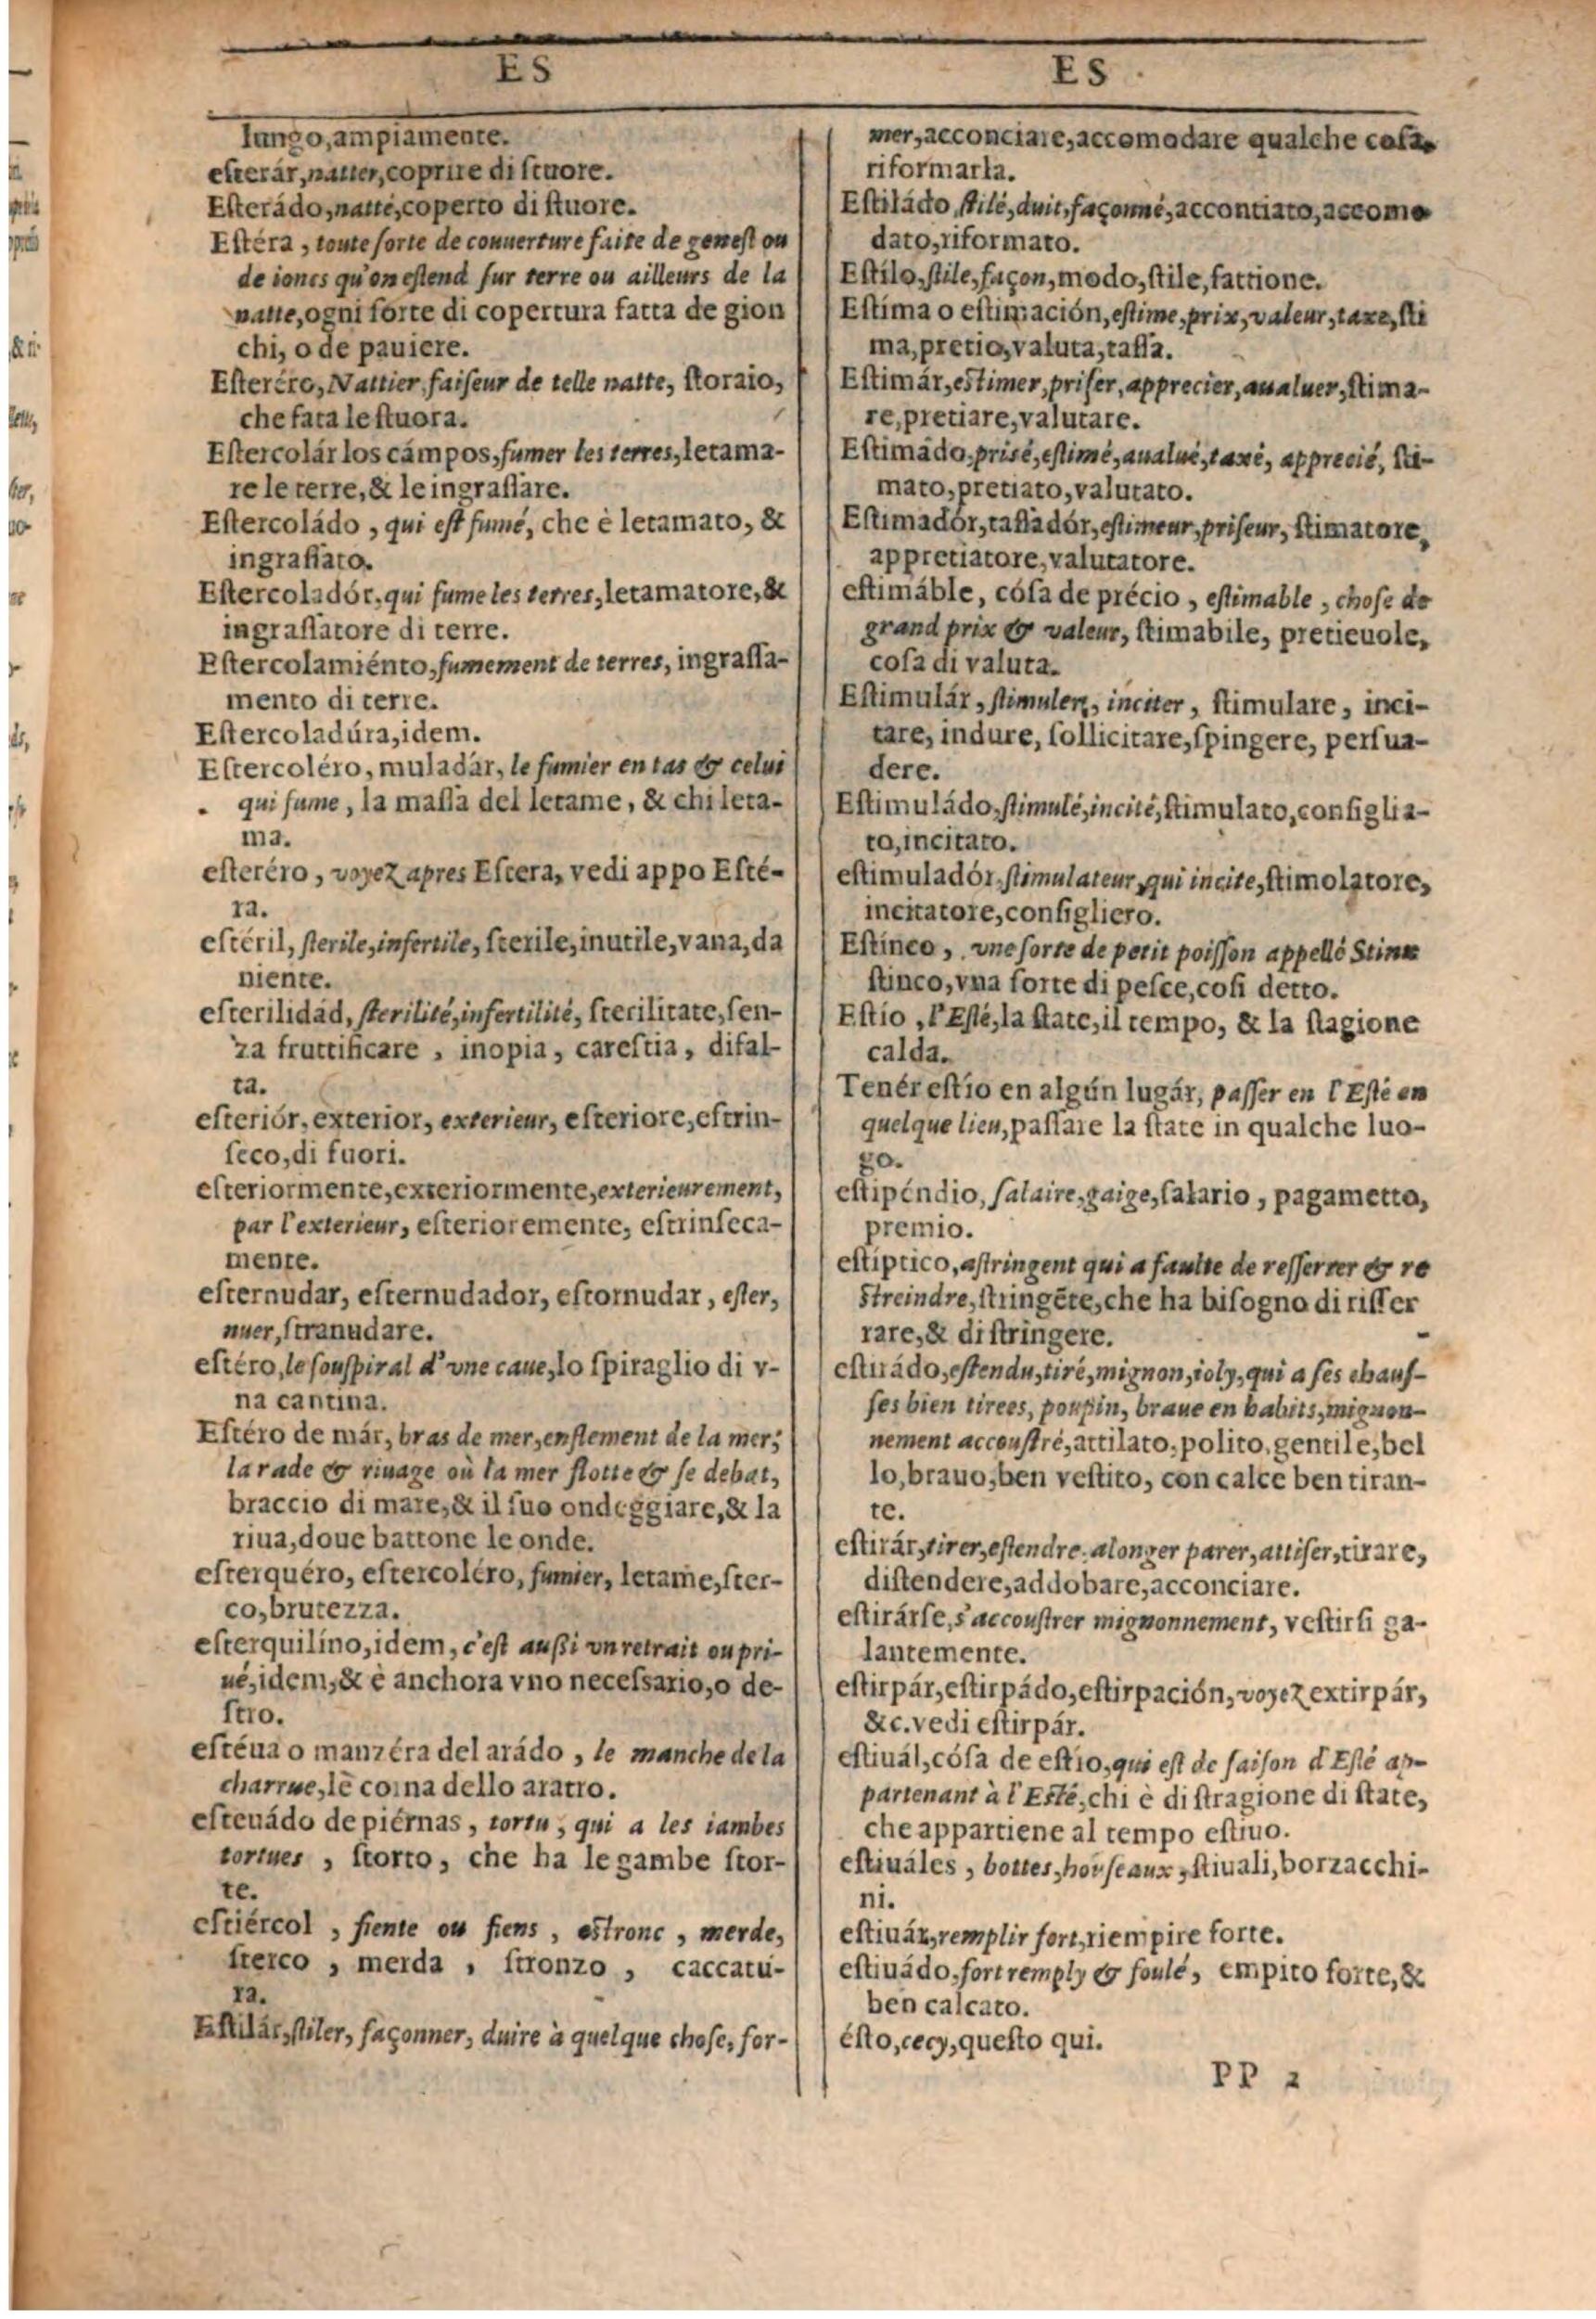 ES
lungo,ampiamente.
eſterár,natter,coprire di ſtuore.
Eſterádo,natté,coperto di ſtuore.
Eſtéra , toute ſorte de couuerture faite de geneſt ou
de ioncs qu'on eſtend ſur terre ou ailleurs de la
natte,ogni ſorte di copertura fatta de gion
chi, o de pauiere.
Eſteréro, Nattier,faiſeur de telle natte, ſtoraio,
che fata le ſtuora.
Eſtercolár los cámpos,fumer les terres,letama-
re le terre,& le ingraſſare.
Eſtercoládo , qui eſt fumé, che è letamato, &
ingraſſato.
Eſtercoladór,qui fume les terres,letamatore,&
ingraſſatore di terre.
Eſtercolamiénto,fumement de terres, ingraſſa-
mento di terre.
Eſtercoladúra,idem.
Eſtercoléro, muladár, le fumier en tas & celui
qui fume , la maſſa del letame, & chi leta-
ma.
eſteréro , voyez apres Eſtera, vedi appo Eſté-
ra.
eſtéril, ſterile,infertile, ſterile,inutile,vana,da
niente.
eſterilidád, ſterilité,infertilité, ſterilitate,ſen-
za fruttificare , inopia, careſtia, difal-
ta.
eſteriór,exterior, exterieur, eſteriore,eſtrin-
ſeco,di fuori.
eſteriormente,exteriormente,exterieurement,
par l'exterieur, eſterioremente, eſtrinſeca-
mente.
eſternudar, eſternudador, eſtornudar , eſter,
nuer,ſtranudare.
eſtéro,le ſouſpiral d'vne caue,lo ſpiraglio di v-
na cantina.
Eſtéro de már, bras de mer,enflement de la mer;
la rade & riuage où la mer flotte & ſe debat,
braccio di mare,& il ſuo ondeggiare,& la
riua,doue battone le onde.
eſterquéro, eſtercoléro, fumier, letame,ſter-
co,brutezza.
eſterquilíno,idem, c'eſt auſſi vn retrait ou pri-
ué,idem,& è anchora vno neceſsario,o de-
ſtro.
eſtéua o manzéra del arádo , le manche de la
charrue,le coma dello aratro.
eſteuádo de piérnas , tortu , qui a les iambes
tortues , ſtorto, che ha le gambe ſtor-
te.
eſtiércol , fiente ou fiens , eſtronc , merde,
ſterco , merda , ſtronzo , caccatu-
ra.
Eſtilár,ſtiler, façonner, duire à quelque choſe, for-
ES
mer,acconciare,accomodare qualche coſa,
riformarla.
Eſtiládo,ſtilé,duit,façonné,accontiato,accomo
dato,riformato.
Eſtílo,ſtile,façon,modo,ſtile,fattione.
Eſtíma o eſtimación,eſtime,prix,valeur,taxe,ſti
ma,pretio,valuta,taſſa.
Eſtimár,eſtimer,priſer, apprecier,aualuer,ſtima-
re,pretiare,valutare.
Eſtimádo,prisé,eſtimé,aualué,taxé, apprecié, ſti-
mato,pretiato,valutato.
Eſtimadór,taſſadór,eſtimeur,priſeur, ſtimatore,
appretiatore,valutatore.
eſtimáble, cóſa de précio , eſtimable , choſe de
grand prix & valeur, ſtimabile, preticuole,
coſa di valuta.
Eſtimulár , ſtimuler, inciter , ſtimulare , inci-
tare, indure, ſollicitare,ſpingere, perſua-
dere.
Eſtimuládo,ſtimulé,incité,ſtimulato,conſiglia-
to,incitato.
eſtimuladór,ſtimulateur,qui incite,ſtimolatore,
incitatore,conſigliero.
Eſtínco , vne ſorte de petit poiſſon appellé Stinx
ſtinco,vna ſorte di peſce,coſi detto.
Eſtío ,l'Eſté,la ſtate,il tempo, & la ſtagione
calda.
Tenér eſtío en algún lugár, paſſer en l'Eſté en
quelque lieu,paſſare la ſtate in qualche luo-
go.
eſtipéndio, ſalaire,gaige,ſalario , pagametto,
premio.
eſtíptico,aſtringent qui a faulte de reſſerrer & re
ſtreindre,ſtringẽte,che ha biſogno di riſſer
rare,& di ſtringere.
eſtirádo,eſtendu,tiré,mignon,ioly,qui a ſes chauſ-
ſes bien tirees, poupin, braue en habits,mignon-
nement accouſtré,attilato,polito,gentile,bel
lo,brauo,ben veſtito, con calce ben tiran-
te.
eſtirár,tirer,eſtendre,alonger parer,attiſer,tirare,
diſtendere,addobare,acconciare.
eſtirárſe,s'accouſtrer mignonnement, veſtirſi ga-
lantemente.
eſtirpár,eſtirpádo,eſtirpación,voyez extirpár,
&c.vedi eſtirpár.
eſtiuál,cóſa de eſtío,qui eſt de ſaiſon d'Eſté ap-
partenant à l'Eſté,chi è di ſtragione di ſtate,
che appartiene al tempo eſtiuo.
eſtiuáles , bottes,houſeaux,ſtiuali,borzacchi-
ni.
eſtiuár,remplir fort,riempire forte.
eſtiuádo,fort remply & foulé, empito forte,&
ben calcato.
éſto,cecy,queſto qui.
PP 2